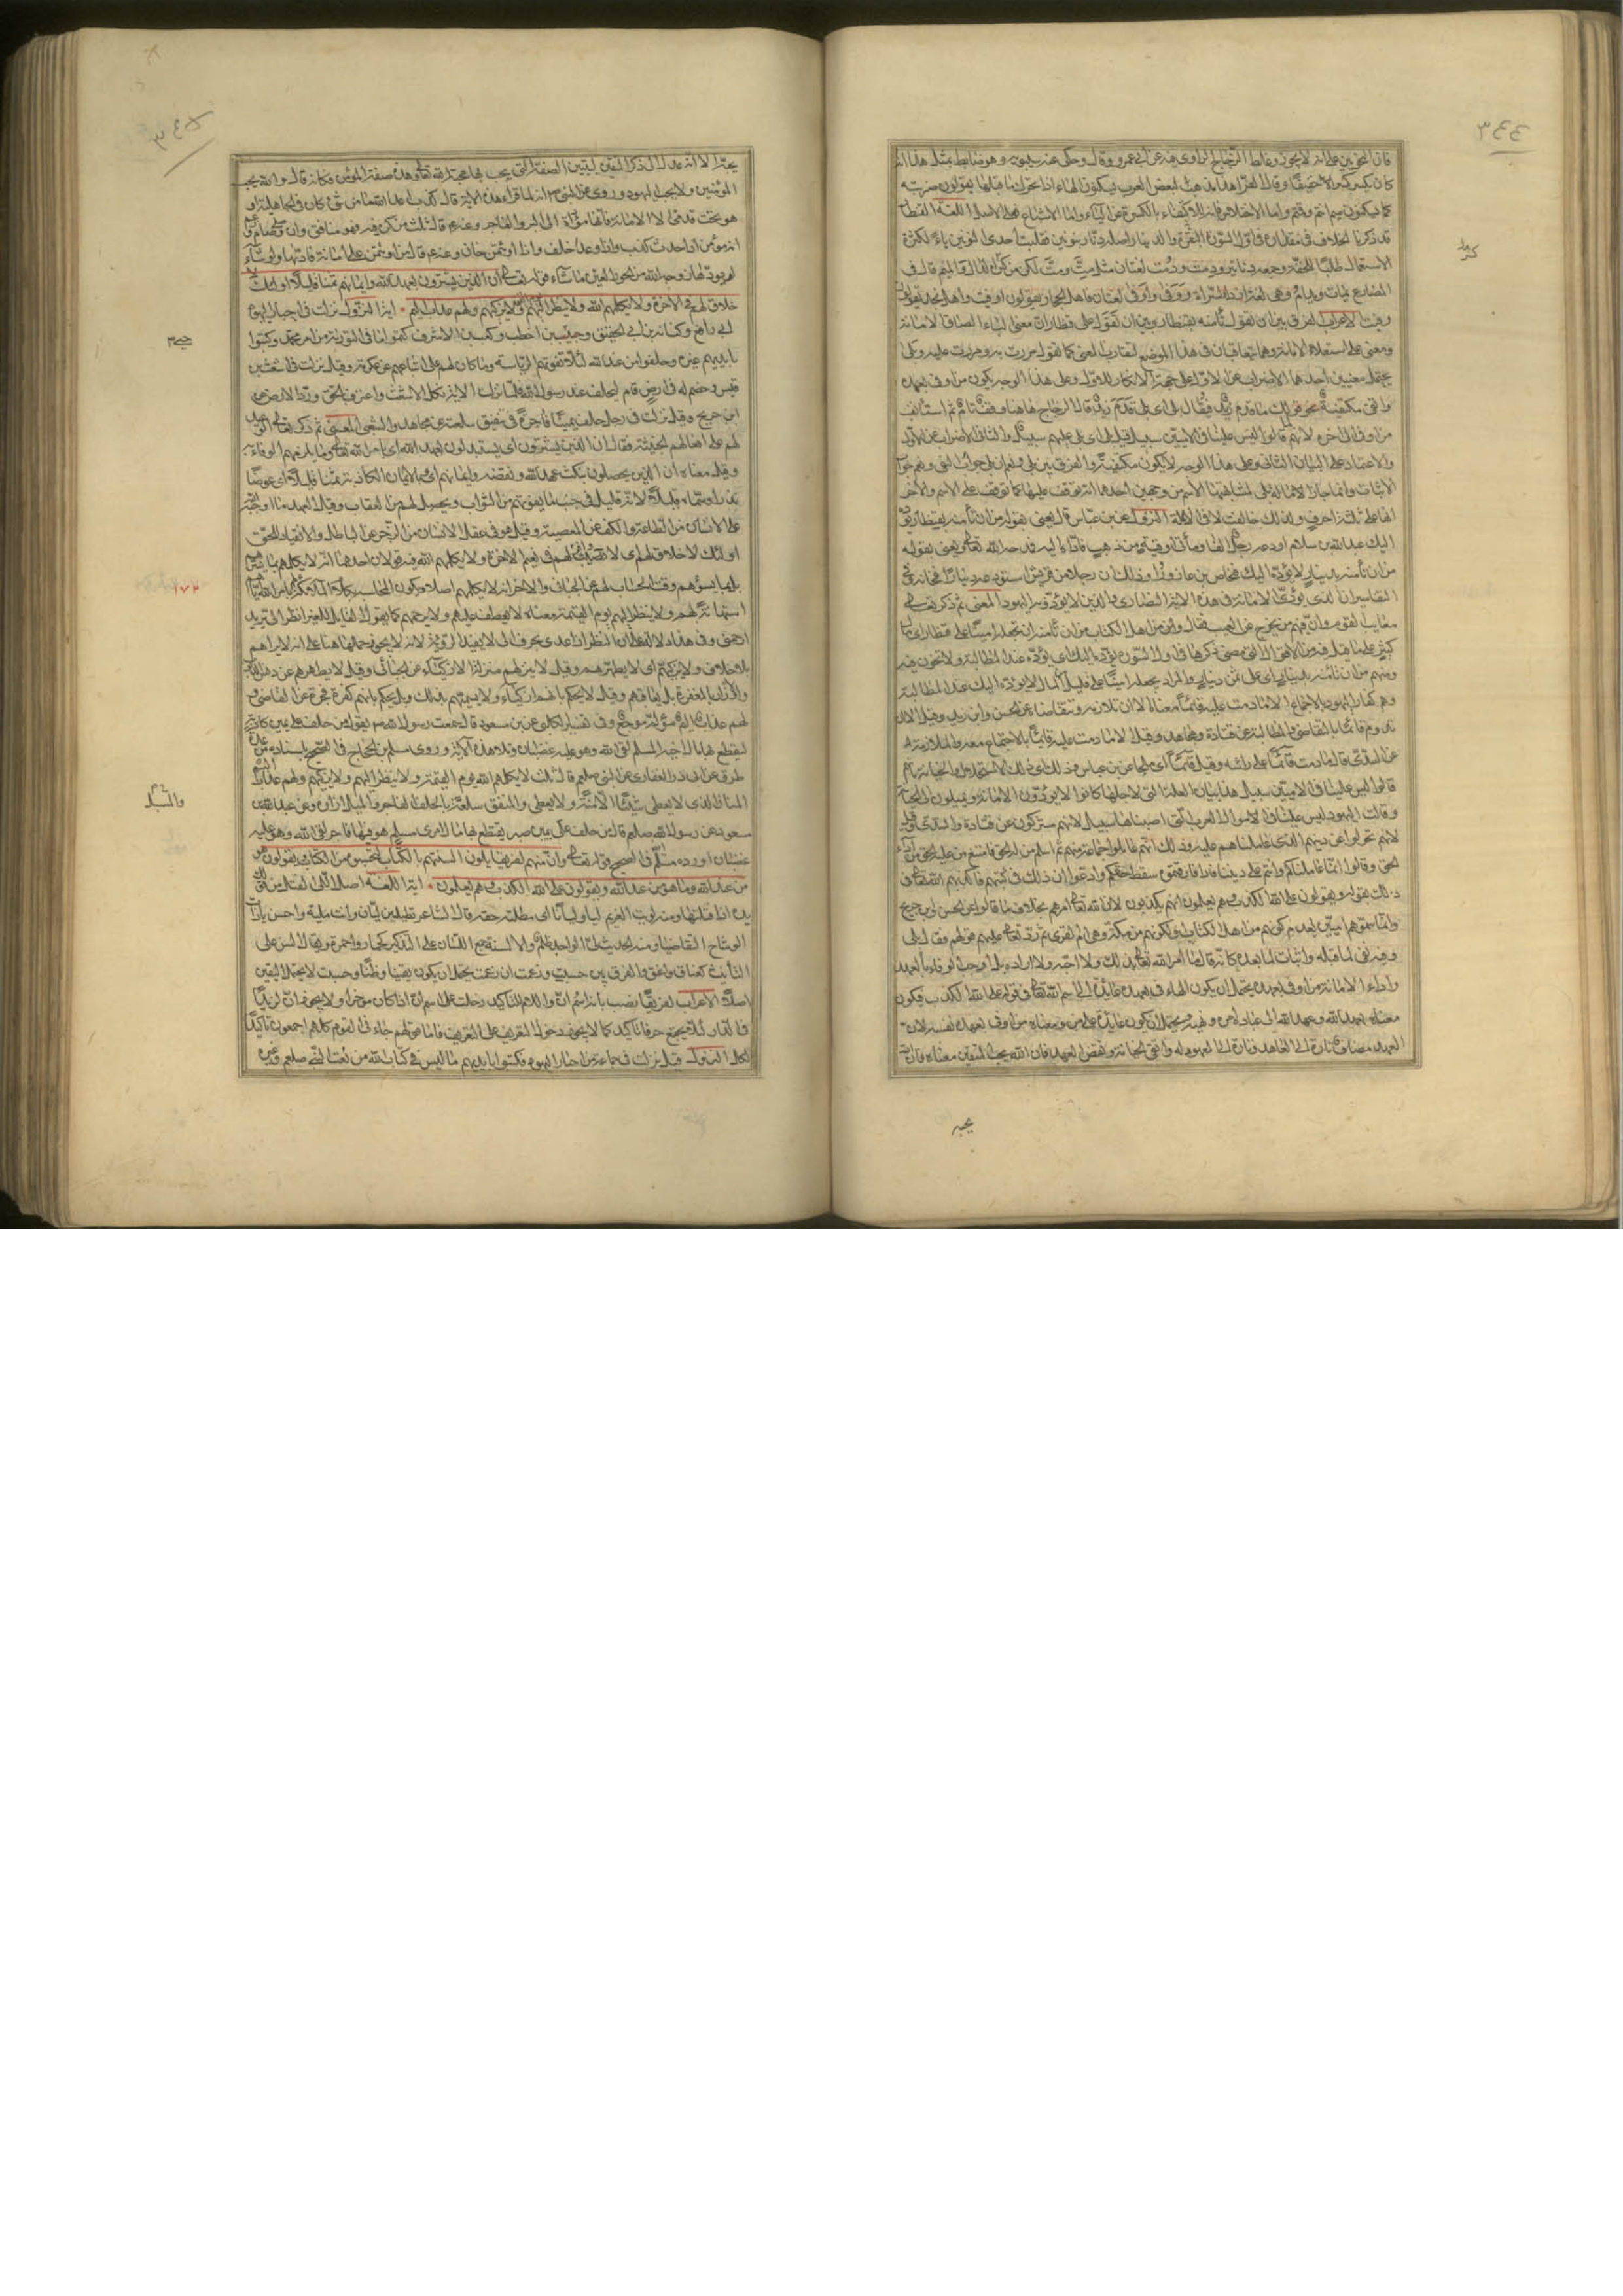 ٣٤٤
فان النحويين على انه لا يجوز وغلط الزجاج الراوى فيه عن ابى عمرو وقال وحكى عنه سيبويه وهو ضابط لمثل هذا انه
كان يكسر كسرا خفيفا وقال الفراء هذا مذهب لبعض العرب يسكنون الهاء اذا تحرك ما قبلها يقولون ضربته
كما يسكنون ميم انتم وقمتم واما الاختلاس فانه للاكتفاء بالكسرة عن الياء واما الاشباع فعلى الاصل اللغة القنطار
قد ذكرنا الخلاف فى مقداره فى اول السورة والدينار اصله دنار بنونين فقلبت احدى النونين ياء لكثرة
الاستعمال طلبا للخفة وجمعه دنانير ودمت ودمت لغتان مثل مت ومت لكن من كسر الدال والميم قال فى
المضارع تمات وتدام وهى لغة ازد السراة ووفى واوفى لغتان فاهل الحجاز يقولون اوفيت واهل نجد يقولون
وفيت الاعراب الفرق بين ان تقول تأمنه بقنطار وبين ان تقول على قنطار ان معنى الباء الصاق الامانة
ومعنى على استعلاء الامانة وهما يتعاقبان فى هذا الموضع لتقارب المعنى كما تقول مررت به ومررت عليه وبلى
يحتمل معنيين احدهما الاضراب عن الاول على جهة الانكار للاول وعلى هذا الوجه يكون من اوفى بعهده
واتقى مكتفية نحو قولك ما قدم زيد فيقال بلى اى بلى قدم زيد قال الزجاج هاهنا وقف تام ثم استأنف
من اوفى الى اخره لانهم قالوا ليس علينا فى الاميين سبيل فقيل بلى اى بلى عليهم سبيل والثانى الاضراب عن الاول
والاعتماد على البيان الثانى وعلى هذا الوجه لا يكون مكتفية والفرق بين بلى ونعم ان بلى جواب النفى ونعم جواب
الاثبات وانما جاز امالة بلى لمشابهتها الاسم من وجهين احدهما انه يوقف عليها كما توقف على الاسم والآخر
انها على ثلثة احرف ولذلك خالفت لا فى الامالة النزول عن ابن عباس قال يعنى بقوله من ان تأمنه بقنطار يؤده
اليك عبد الله بن سلام اودعه رجل الفا ومأتى اوقية من ذهب فاداه اليه فمدحه الله تعالى ويعنى بقوله
من ان تأمنه بدينار لا يؤده اليك فنحاص بن عازورا وذلك ان رجلا من قريش استودعه دينارا فخانه وفى بعض
التفاسير ان الذى يؤدى الامانة فى هذه الاية النصارى والذين لا يؤدونه اليهود المعنى ثم ذكر تعالى
معايب القوم وان فيهم من تحرج عن العيب فقال ومن اهل الكتاب من ان تأمنه ان تجعله امينا على قنطار اى مال
كثير على ما قيل فيه من الاقوال التى مضى ذكرها فى اول السورة يؤده اليك اى يؤده عند المطالبة ولا يخون فيه
ومنهم من ان تأمنه بدينار اى على ثمن دينار والمراد يجعله امينا على قليل من المال لا يؤده اليك عند المطالبة
وهم كفار اليهود بالاجماع الا ما دمت عليه قائما معناه الا ان تلازمه وتتقاضاه عن الحسن وابن زيد وقيل الا ان
تدوم قائما بالتقاضى والمطالبة عن قتادة ومجاهد وقيل الا ما دمت عليه قائما بالاجتماع معه والملازمة له
عن السدى قال ما دمت قائما على رأسه وقيل قائما اى ملحا عن ابن عباس ذلك اى ذلك الاستحلال والخيانة بانهم
قالوا ليس علينا فى الاميين سبيل هذا بيان العلة التى لاجلها كانوا لا يؤدون الامانة ويميلون الى الخيانة
وقالت اليهود ليس علينا فى الاموال العرب التى اصبناها سبيل لانهم مشركون عن قتادة والسدى وقيل
لانهم تحولوا عن دينهم الذى عاملناهم عليه وذلك انهم عاملوا جماعة منهم ثم اسلم من له الحق فامتنع من عليه الحق من اداء
الحق وقالوا انما عاملناكم وانتم على ديننا فاذا فارقتموه سقط حقكم وادعوا ان ذلك فى كتبهم فاكذبهم الله تعالى فى
ذلك بقوله ويقولون على الله الكذب وهم يعلمون انهم يكذبون لان الله تعالى امرهم بخلاف ما قالوا عن الحسن وابن جريج
وانما سموهم اميين لعدم كونهم من اهل الكتاب او لكونهم من مكة وهى ام القرى ثم رد تعالى عليهم قولهم وقال بلى
وفيه نفى لما قبله واثبات لما بعده كانه قال ما امر الله تعالى بذلك ولا احبه ولا اراده بل اوجب الوفاء بالعهد
واداء الامانة من اوفى بعهده يحتمل ان يكون الهاء فى بعهده عائدة الى اسم الله تعالى فى قوله على الله الكذب فيكون
معناه بعهد الله وعهد الله الى عباده امره ونهيه ويحتمل ان يكون عائدة على من ومعناه من اوفى بعهد نفسه لان
العهد مضاف تارة الى العاهد وتارة الى المعهود له واتقى الخيانة ونقض العهد فان الله يحب المتقين معناه فان الله
يحبه
٣٤٥
يحبه الا انه عدل الى ذكر المتقين ليبين الصفة التى يجب بها محبة الله تعالى وهذه صفة المؤمن فكانه قال والله يحب
المؤمنين ولا يحب اليهود وروى عن النبى انه لما قرأ هذه الاية قال كذب اعداء الله ما من شئ كان فى الجاهلية الا و
هو تحت قدمى الا الامانة فانها مؤداة الى البر والفاجر وعنه قال ثلث من كن فيه فهو منافق وان صلى وصام وزعم
انه مؤمن اذا حدث كذب واذا وعد اخلف واذا اوتمن خان وعنه قال من اوتمن على امانة فاداها ولو شاء
لم يؤدها زوجه الله من الحور العين ما شاء قوله تعالى ان الذين يشترون بعهد الله وايمانهم ثمنا قليلا اولئك لا
خلاق لهم فى الاخرة ولا يكلمهم الله ولا ينظر اليهم يوم القيمة ولا يزكيهم ولهم عذاب اليم اية النزول نزلت فى احبار اليهود
ابى رافع وكنانة بن ابى الحقيق وحيى بن اخطب وكعب بن الاشرف كتموا ما فى التورية من امر محمد وكتبوا
بايديهم غيره وحلفوا انه من عند الله لئلا تفوتهم الرياسة وما كان لهم على اتباعهم عن عكرمة وقيل نزلت فى الاشعث بن
قيس وخصم له فى ارض قام ليحلف عند رسول الله فلما نزلت الاية نكل الاشعث واعترف بالحق ورد الارض عن
ابن جريج وقيل نزلت فى رجل حلف يمينا فاجرة فى تنفيق سلعته عن مجاهد والشعبى المعنى ثم ذكر تعالى الوعيد
لهم على افعالهم الخبيثة فقال ان الذين يشترون اى يستبدلون بعهد الله اى بامر الله تعالى وما يلزمهم الوفاء به
وقيل معناه ان الذين يحصلون بنكث عهد الله ونقضه وايمانهم اى وبالايمان الكاذبة ثمنا قليلا اى عوضا
نذرا وسماه قليلا لانه قليل فى جنب ما يفوتهم من الثواب ويحصل لهم من العقاب وقيل العهد ما اوجبه
على الانسان من الطاعة والكف عن المعصية وقيل هو فى عقل الانسان من الزجر عن الباطل والانقياد للحق
اولئك لا خلاق لهم اى لا نصيب لهم فى نعيم الاخرة ولا يكلمهم الله فيه قولان احدهما انه لا يكلمهم بما يسرهم
بل بما يسؤهم وقت الحساب لهم عن الجبائى والاخر انه لا يكلمهم اصلا وتكون المحاسبة بكلام الملائكة لهم بامر الله اياهم
استهانة بهم ولا ينظر اليهم يوم القيمة معناه لا يعطف عليهم ولا يرحمهم كما يقول القايل للغير انظر الى يريد
ارحمنى وفى هذا دلالة على ان النظر اذا عدى بحرف الى لا يفيد الرؤية لانه لا يجوز حملها هنا على انه لا يراهم
بلا خلاف ولا يزكيهم اى لا يطهرهم وقيل لا ينزلهم منزلة الازكياء عن الجبائى وقيل لا يطهرهم من دنس الذنوب
والاوزار بالمغفرة بل يعاقبهم وقيل لا يحكم بانهم ازكياء ولا يسميهم بذلك وبل يحكم بانهم كفرة فجرة عن القاضى و
لهم عذاب اليم مؤلم موجع وفى تفسير الكلبى عن ابن مسعود قال سمعت رسول الله يقول من حلف على يمين كاذبة
ليقطع بها مال اخيه المسلم لقى الله وهو عليه غضبان وتلا هذه الاية وروى مسلم بن الحجاج فى الصحيح باسناده من عدة
طرق عن ابى ذر الغفارى عن النبى صلعم قال ثلثة لا يكلمهم الله يوم القيمة ولا ينظر اليهم ولا يزكيهم ولهم عذاب اليم
المنان الذى لا يعطى شيئا الا منة ولا يعطى والمنفق سلعته بالحلف الفاجر والمسبل ازاره وعن عبد الله بن
مسعود عن رسول الله صلعم قال من حلف على يمين صبر يقتطع بها مال امرئ مسلم هو فيها فاجر لقى الله وهو عليه
غضبان اورده مسلم فى الصحيح قوله تعالى وان منهم لفريقا يلون السنتهم بالكتاب لتحسبوه من الكتاب ويقولون هو
من عند الله وما هو من عند الله ويقولون على الله الكذب وهم يعلمون اية اللغة اصل اللى الفتل من قولك لويت
يده اذا فتلتها ومنه لويت الغريم ليا وليانا اى مطلته حقه قال الشاعر تطيلين ليانى وانت ملية واحسن يا ذات
الوشاح التقاضيا ومنه الحديث لى الواجد ظلم والالسنة جمع اللسان على التذكير كحمار واحمرة ويقال السن على
التأنيث كعناق واعنق والفرق بين حسبت وزعمت ان زعمت يحتمل ان يكون يقينا وظنا وحسبت لا يحتمل اليقين
اصلا الاعراب لفريقا نصب بانه اسم ان واللام للتاكيد دخلت على اسم ان اذا كان مؤخرا ولا يجوز ان لزيدا
فى الدار لئلا يجتمع حرفا تاكيد كما لا يجوز دخول التعريف على التعريف فاما قولهم جاءنى القوم كلهم اجمعون تاكيدا
لكل النزول قيل نزلت فى جماعة من احبار اليهود كتبوا بايديهم ما ليس فى كتاب الله من نعت النبى صلعم وغيره
١٧٢